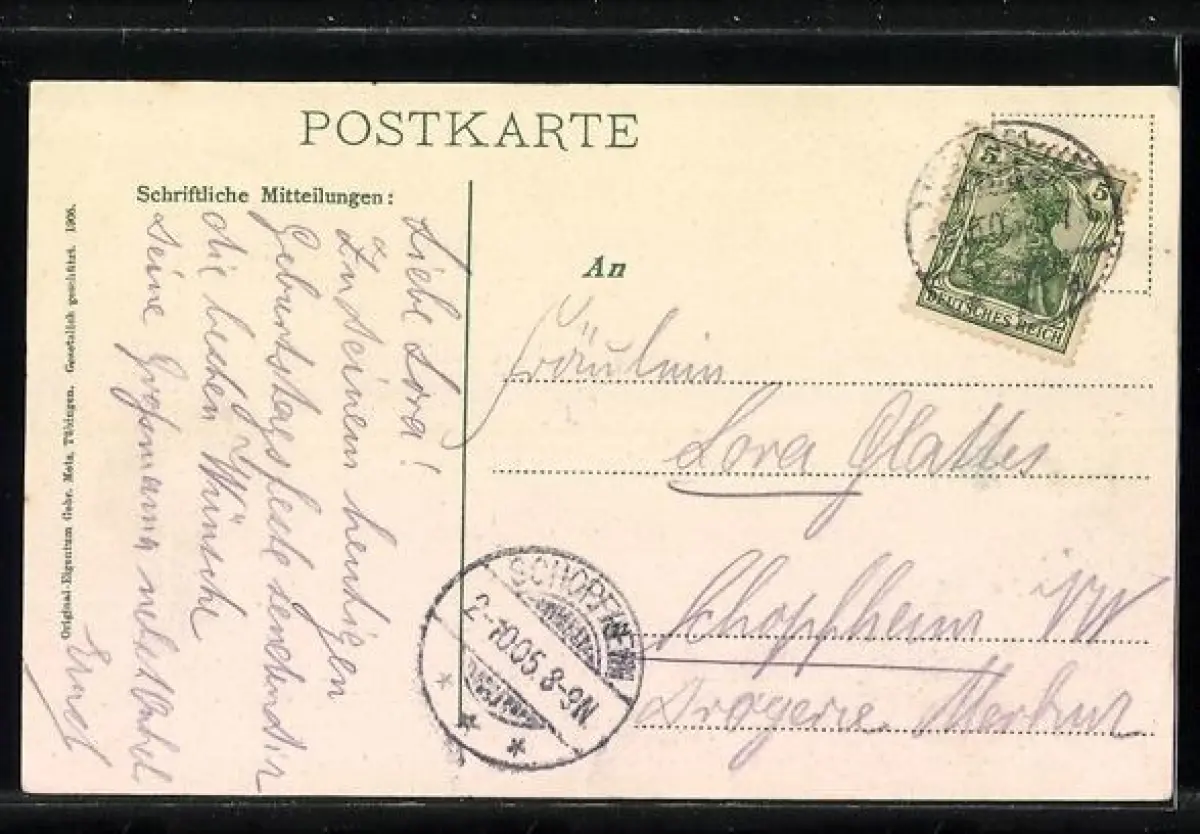 POSTKARTE
Schriftliche Mitteilungen:
Liebe Lora!
Zu Deinem heutigen
Geburtstagsfeste senden dir
die besten Wünsche
Deine Großmama nebst Onkel
Ernst
An
Fräulein
Lora Glattes
Schopfheim i/W
Drogerie Merkur
5 5
DEUTSCHES REICH
SCHOPFHEIM
2-10.05.8-9N
Original-Eigentum Gebr. Metz, Tübingen. Gesetzlich geschützt. 1905.